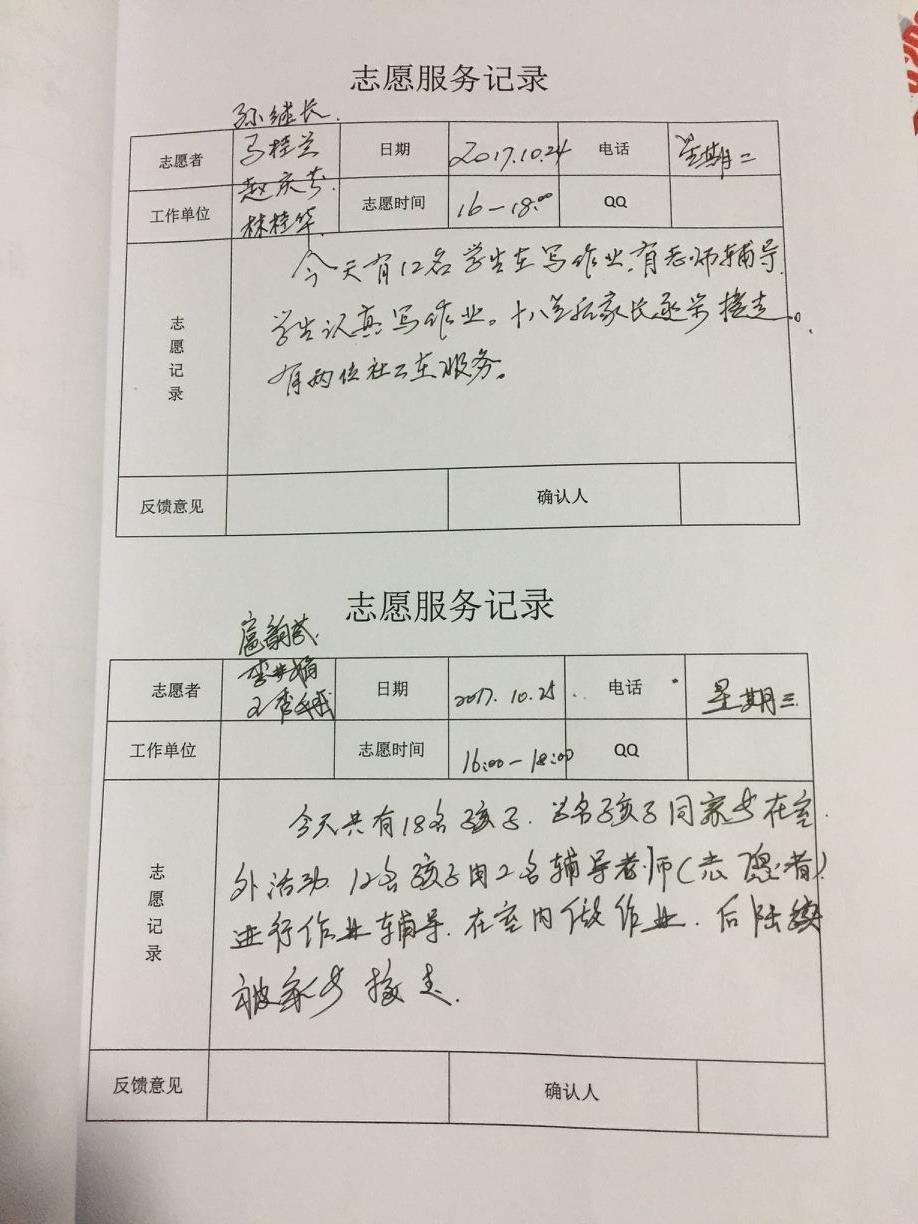 志愿服务记录
孙继长.
志愿者 马桂兰 日期 2017.10.24 电话 星期二
赵庆芬.
工作单位 林桂华. 志愿时间 16-18:00 QQ
志愿记录
今天有12名学生在写作业.有老师辅导.
学生认真写作业。十八点后家长逐步接走。
有两位社工在服务。
反馈意见 确认人
志愿服务记录
志愿者 日期 2017.10.25 电话 星期三
工作单位 志愿时间 16:00-18:00 QQ
志愿记录
今天共有18名孩子. 名孩子同家长在室.
外活动. 12名孩子由2名辅导老师(志愿者)
进行作业辅导.在室内做作业.后陆续
被家长接走.
反馈意见 确认人